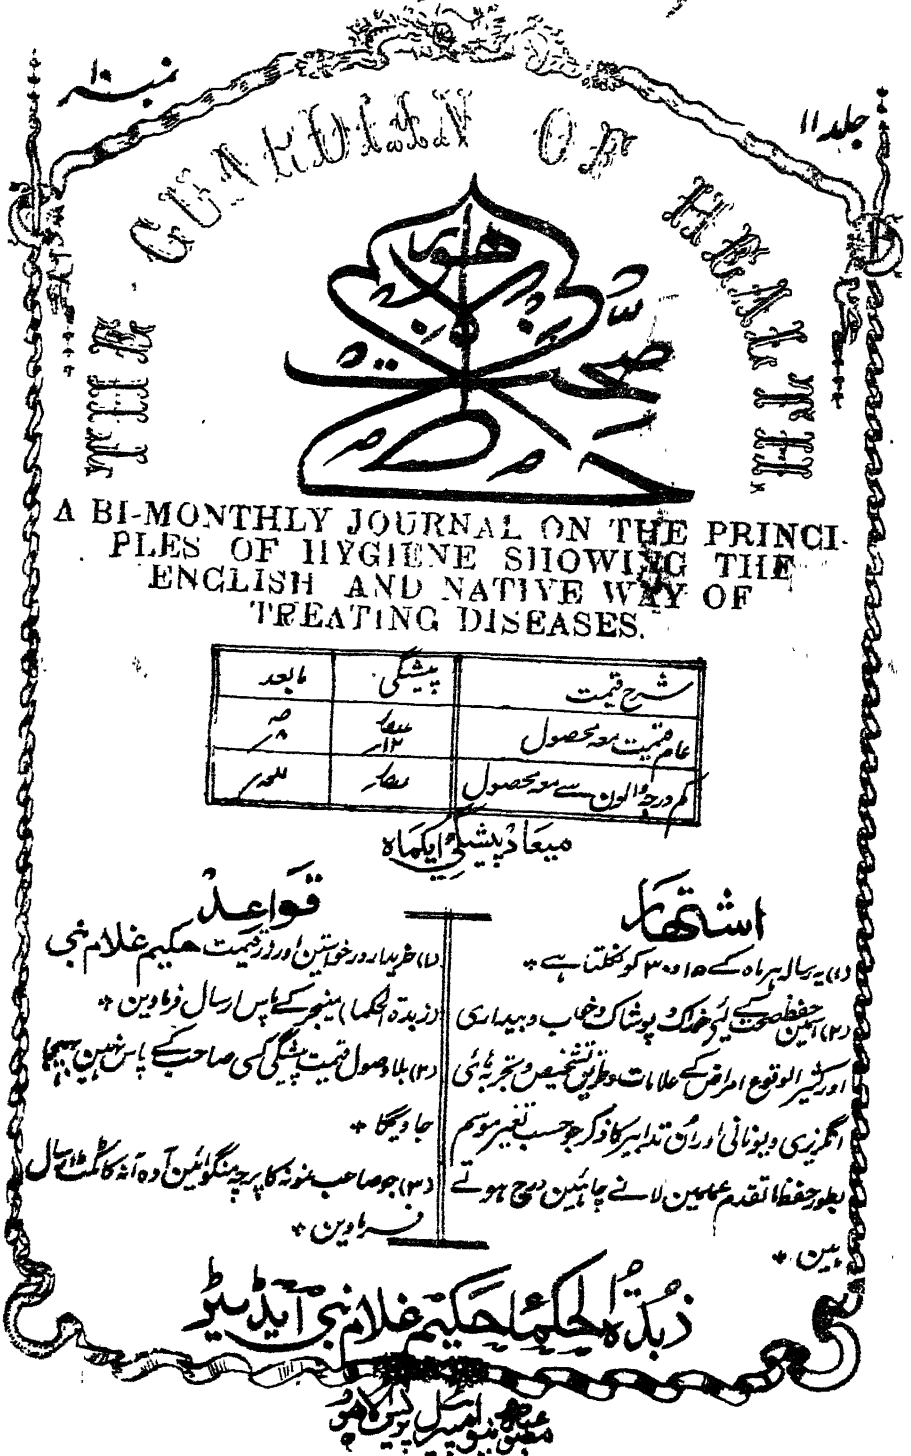 جلد ۱۱
نمبر ۱۰
THE GUARDIAN OF HEALTH
محافظ صحت لاہور
A BI-MONTHLY JOURNAL ON THE PRINCI-
PLES OF HYGIENE SHOWING THE
ENGLISH AND NATIVE WAY OF
TREATING DISEASES.
شرح قیمت پیشگی مابعد
عام قیمت معہ محصول
کم درجہ والوں سے معہ محصول
میعاد پیشگی ایکماہ
اشتہار
(۱) یہ رسالہ ہر ماہ کے ۱۵ و ۳۰ کو نکلتا ہے *
(۲) اسمین حفظ صحت کے لئے خوراک و پوشاک و خواب و بیداری
اور کثیر الوقوع امراض کے علامات و طریق تشخیص و تجربہ ہائی
انگریزی و یونانی اور ان تدابیر کا ذکر جو حسب تغیر موسم
بطور حفظ ما تقدم عملمین لانے چاہئین درج ہوتے
ہین *
قواعد
(۱) خریدار درخواستین اور زر قیمت حکیم غلام نبی
(زبدۃ الحکما) مینیجر کے پاس ارسال فرماوین *
(۲) بلا وصول قیمت پیشگی کسی صاحب کے پاس نہین بھیجا
جاویگا *
(۳) جو صاحب نمونہ کا پرچہ منگوائین آدہ آنہ کا ٹکٹ ارسال
فرماوین *
زبدۃ الحکما حکیم غلام نبی ایڈیٹر
مطبوعہ نیو امپیریل پریس لاہور